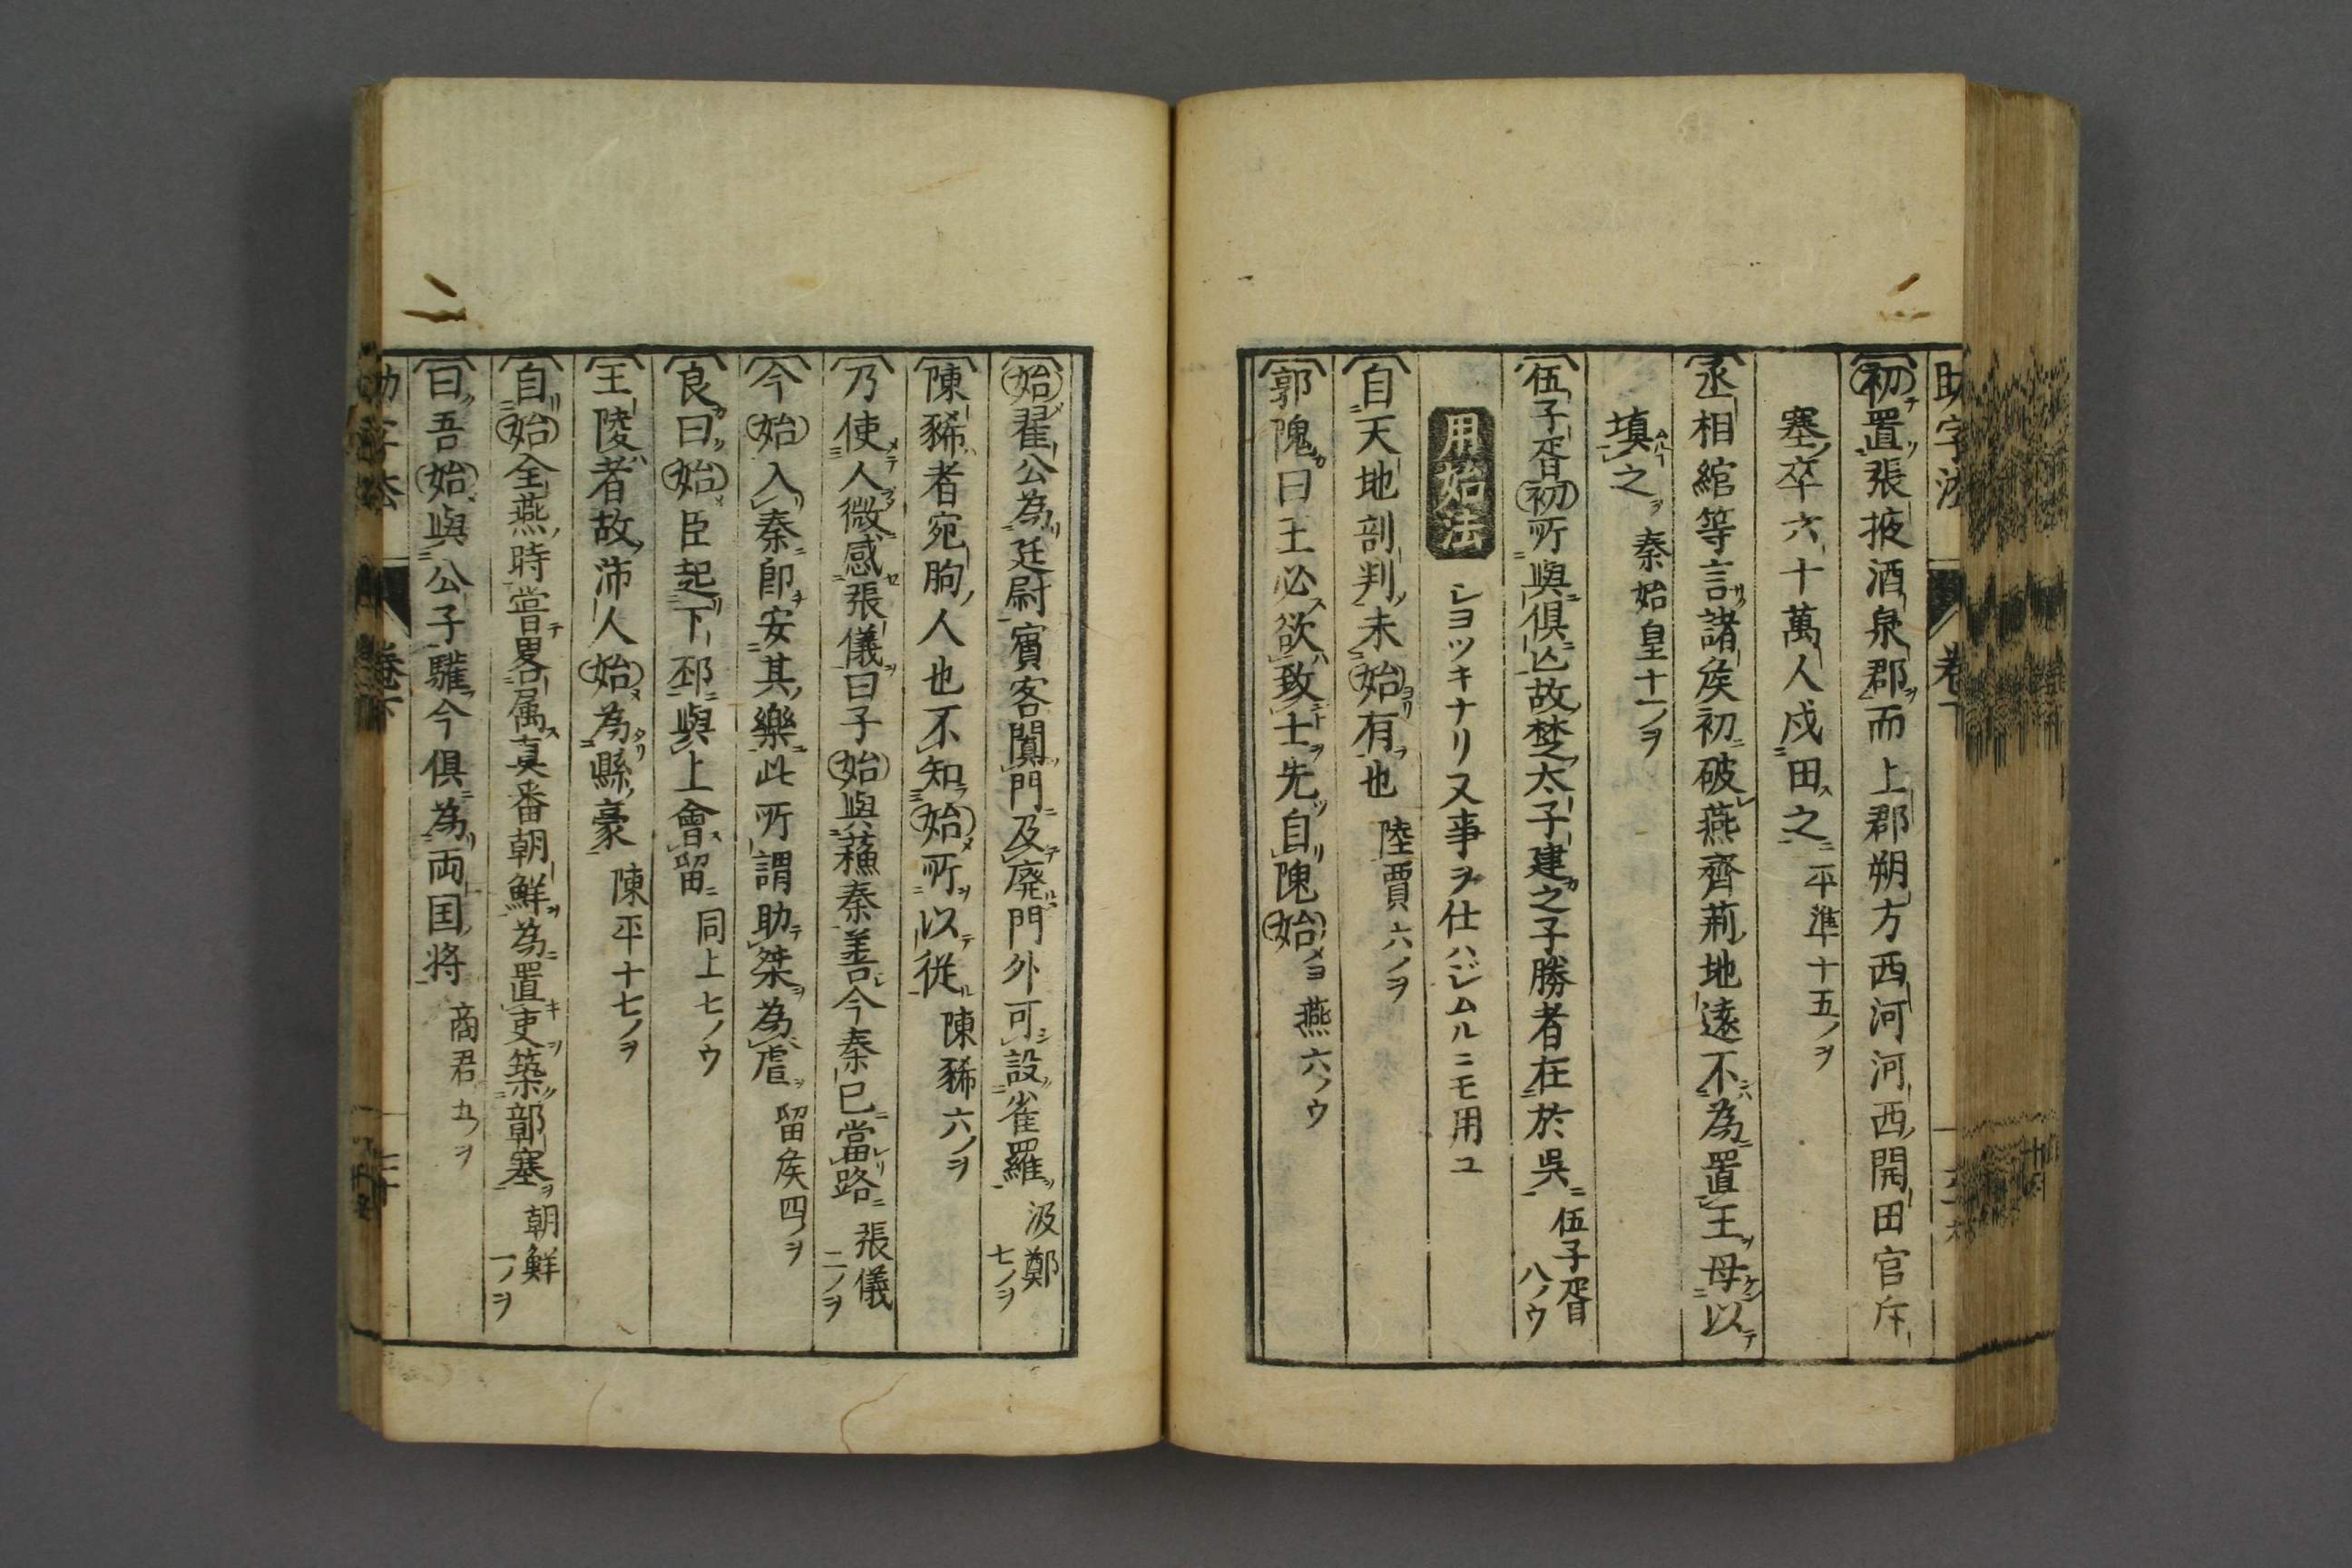 助字法
初置張掖酒泉郡而上郡朔方西河河西開田官斥
塞卒六十萬人戍田之 平準十五ノヲ
丞相綰等言諸矦初破燕齊荊地遠不為置王母以
填之 秦始皇十一ノヲ
伍子胥初所與俱亾故楚太子建之子勝者在於吳 伍子胥八ノウ
用始法 シヨツキナリ又事ヲ仕ハジムルニモ用ユ
自天地剖判未始有也 陸賈六ノヲ
郭隗曰王必欲致士先自隗始 燕六ノウ
始翟公為廷尉賓客闐門及廢門外可設雀羅 汲鄭七ノヲ
陳豨者宛朐人也不知始所以從 陳豨六ノヲ
乃使人微感張儀曰子始與蘓秦善今秦已當路 張儀二ノヲ
今始入秦卽安其樂此所謂助桀為虐 留矦四ノヲ
良曰始臣起下邳與上會留 同上七ノウ
王陵者故沛人始為縣豪 陳平十七ノヲ
自始全燕時嘗畧属真番朝鮮為置吏築鄣塞 朝鮮一ノヲ
曰吾始與公子驩今俱為両国将 商君五ノヲ
助字法 卷下